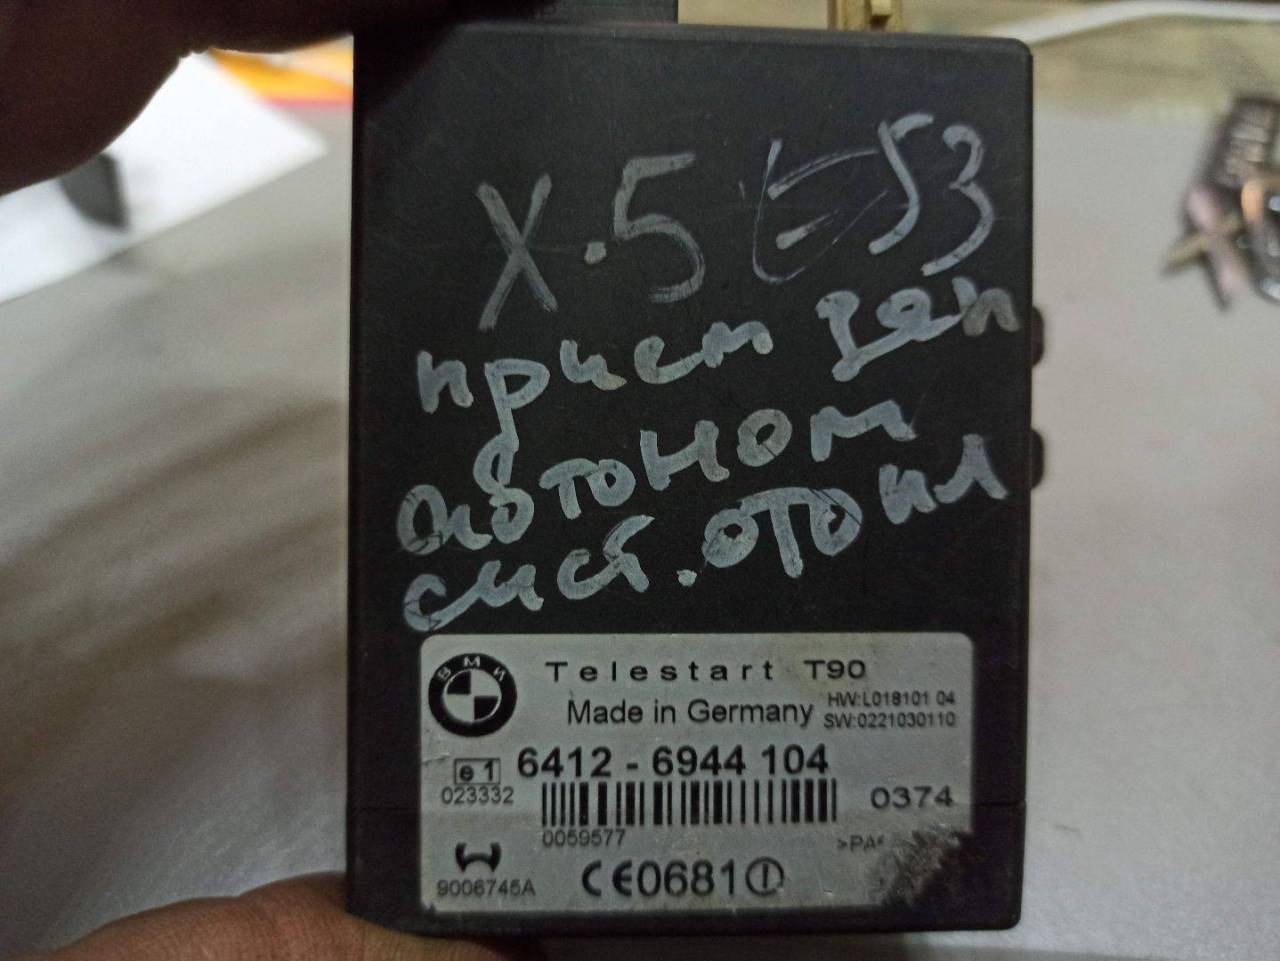 X.5 E53
прием
автоном
сист. отопл
BMW
Telestart T90
Made in Germany
HW:L018101 04
SW:0221030110
6412 - 6944 104
e1
023332
0374
0059577
>PA
9006745A
CE0681